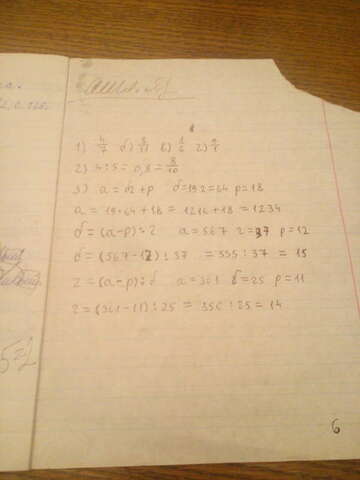 1) 4/7 б) 3/11 в) 1/6 г)
2) 4:5 = 0,8 = 8/10
3) a = бz+p б=19 z=64 p=18
a = 19·64+18 = 1216+18 = 1234
б = (a-p):z a=567 z=37 p=12
б = (567-12):37 = 555:37 = 15
z = (a-p):б a=361 б=25 p=11
z = (361-11):25 = 350:25 = 14
6